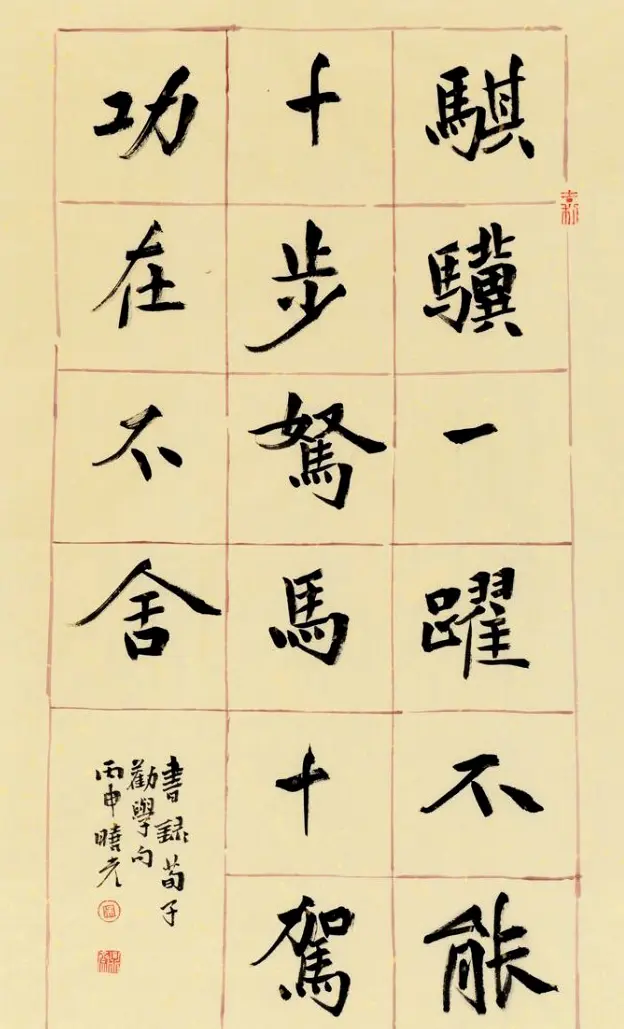 騏驥一躍不能
十步駑馬十駕
功在不舍
書錄荀子
勸學句
丙申曉光
吉利